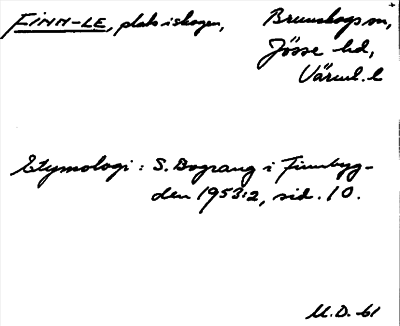 FINN-LE, plats i skogen, Brunskogs sn,
Jösse hd,
Värml. l
Etymologi: S. Bograng i Finnbyg-
den 1953:2, sid. 10.
M.D. -61